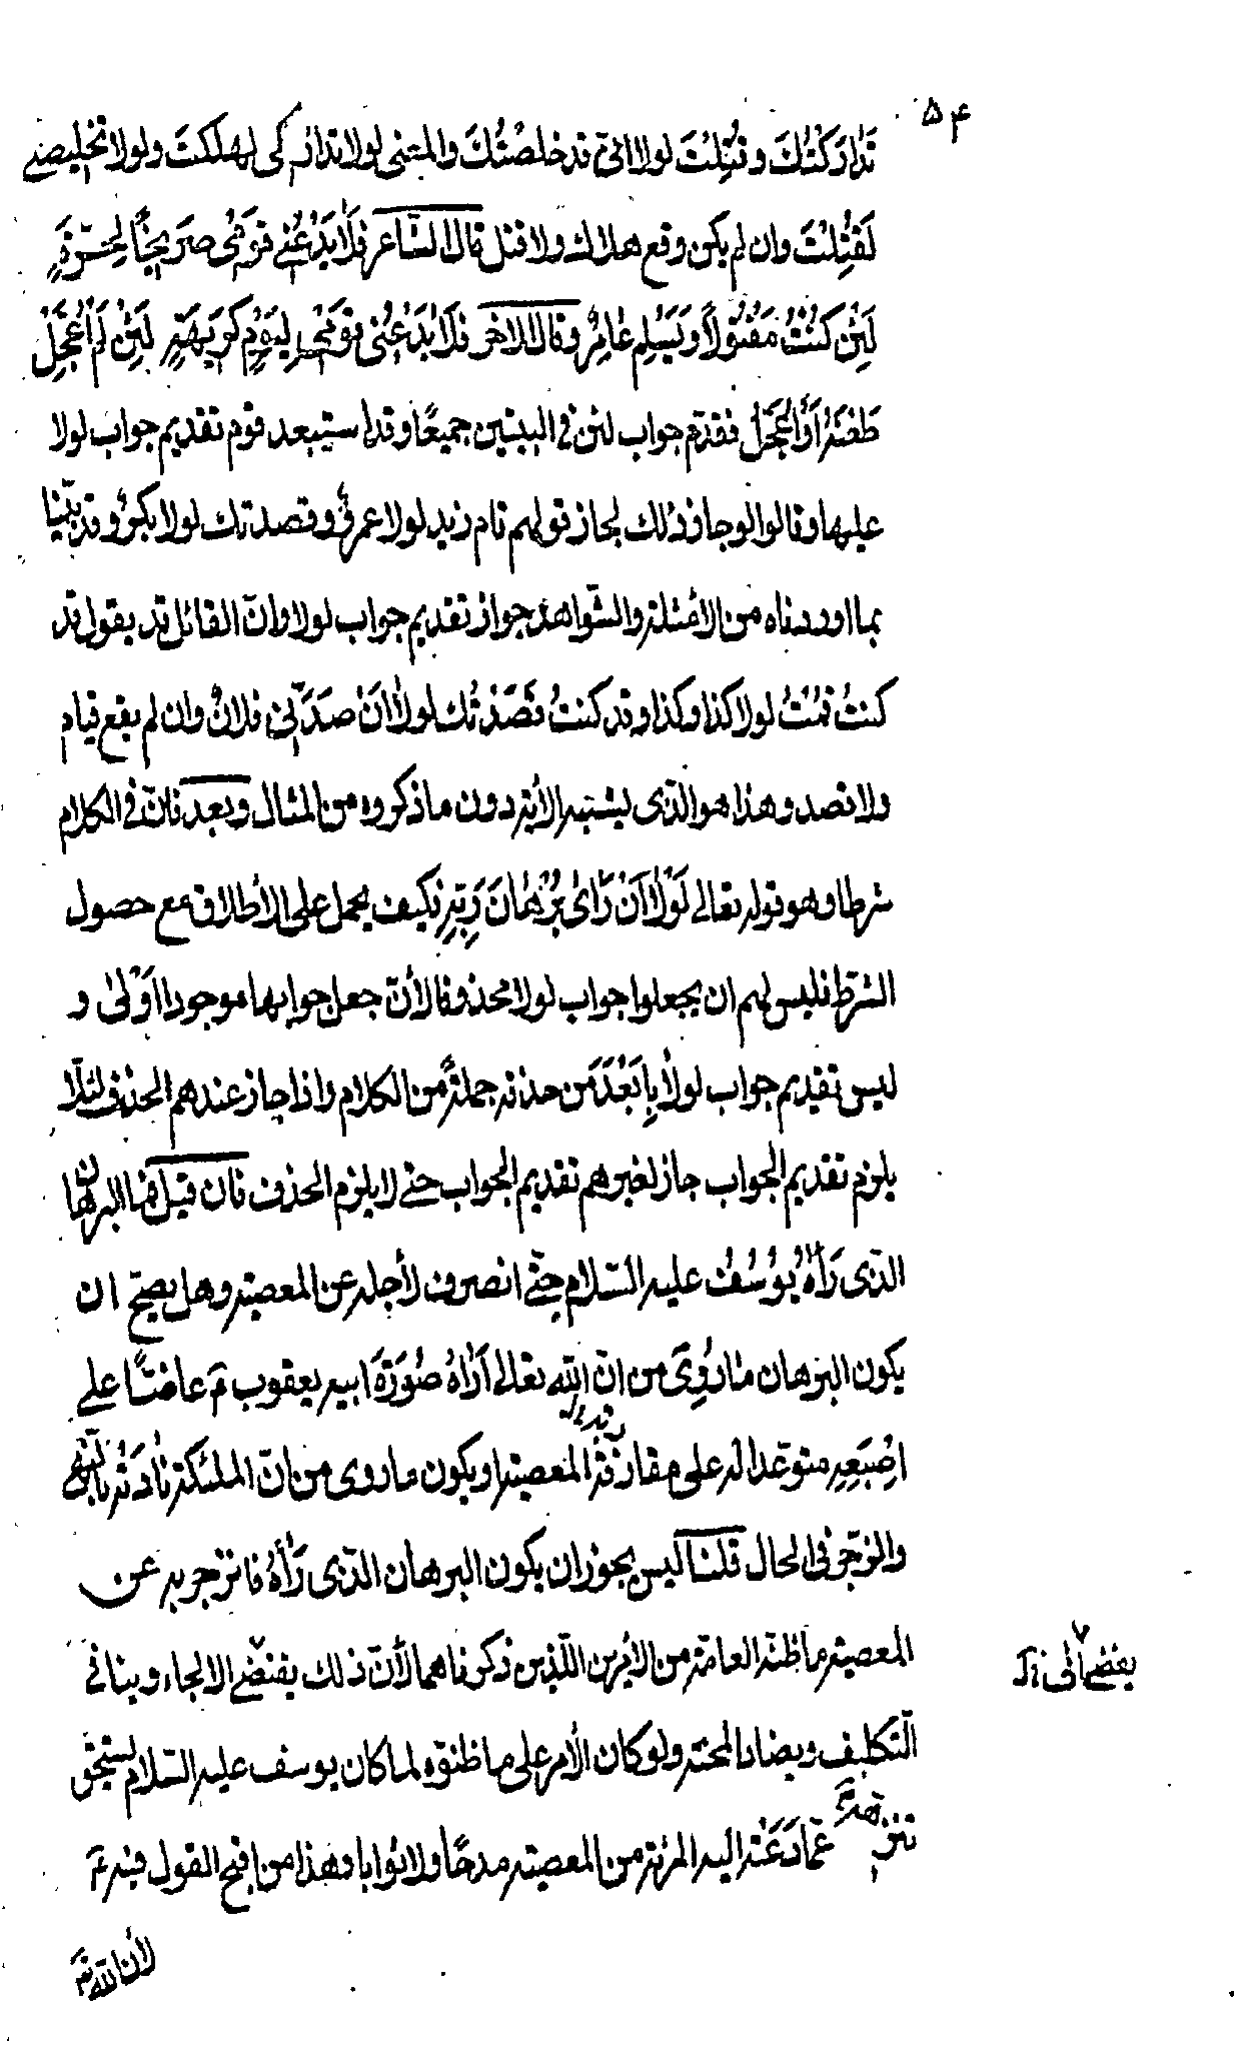 ۵۴
تَدٰارَكْتُكَ وقُتِلتَ لولا انّى قد خلصْتُكَ والمعنى لولا تداركى لهلكتَ ولولا تخليصے
لَقُتِلتَ وان لم يكن وقع هلاك ولا قتل قال الشّاعر فَلٰا يَدْعُنِے قَوْمى صَريحًا لِحُرّةٍ
لَئِنْ كُنْتُ مَقْتُولًا ويَسْلِم عٰامِرٌ وقال الاخر فَلٰا يَدْعُنى قَوْمى لِيَوْمِ كَريهَةٍ لَئِنْ لَم اُعَجِّلْ
طَعْنَةً اَوْ اُعَجِّل فقدّم جواب لئن فى البيتين جميعًا وقد استبعد قوم تقديم جواب لولا
عليها وقالوا لو جاز ذلك لجاز قولهم قام زيد لولا عمرو وقصدتك لولا بكر وقد بيّنا
بما اوردناه من الأمثلة والشّواهد جواز تقديم جواب لولا وانّ القائل قد يقول قد
كنتُ قمتُ لولا كذا وكذا وقد كنتُ قَصَدْتُك لولٰا اَنْ صَدَّنى فلانٌ وان لم يقع قيام
ولا قصد وهذا هو الذّى يشبه الأية دون ما ذكروه من المثال وبعد فانّ فى الكلام
شرطا وهو قوله تعالى لَوْلٰا اَنْ رَأىٰ بُرْهٰانَ رَبِّهِ فكيف يحمل على الأطلاق مع حصول
الشّرط فليس لهم ان يجعلوا جواب لولا محذوفا لأنّ جعل جوابها موجودا اَوْلىٰ و
ليس تقديم جواب لولا بِاَبْعَدَ من حذف جملةٍ من الكلام واذا جاز عندهم الحذف لئلّا
يلزم تقديم الجواب جاز لغيرهم تقديم الجواب حتّے لا يلزم الحذف فان قيل فما البرهان
الذّى رَأٰهُ يُوسُفُ عليه السّلام حتّے انصرف لأجله عن المعصية وهل يصحّ ان
يكون البرهان مٰا رُوِىَ من انّ الله تعالى اَرٰاهُ صُوَرَةَ ابيه يعقوب ؑم عاضّا علے
اِصْبَعِهِ متوعّدا له على مقارفة المعصية او يكون ما روى من انّ الملئكة نٰادَتْه بالنّهى
والزّجر فى الحال قلنا ليس يجوز ان يكون البرهان الذّى رَأٰهُ فانزجر به عن
المعصية ما ظنّه العامّة من الأمرين اللّذين ذكرناهما لأنّ ذلك يقتضے الالجاء وينافى
التّكليف ويضادّ المحنة ولو كان الأمر على ما ظنّوه لما كان يوسف عليه السّلام يستحق
بتنزّهه عمّا دَعَتْه اليه المرئة من المعصية مدحًا ولا ثوابا وهذا من اقبح القول فيه ؑم
لأن الله تَع